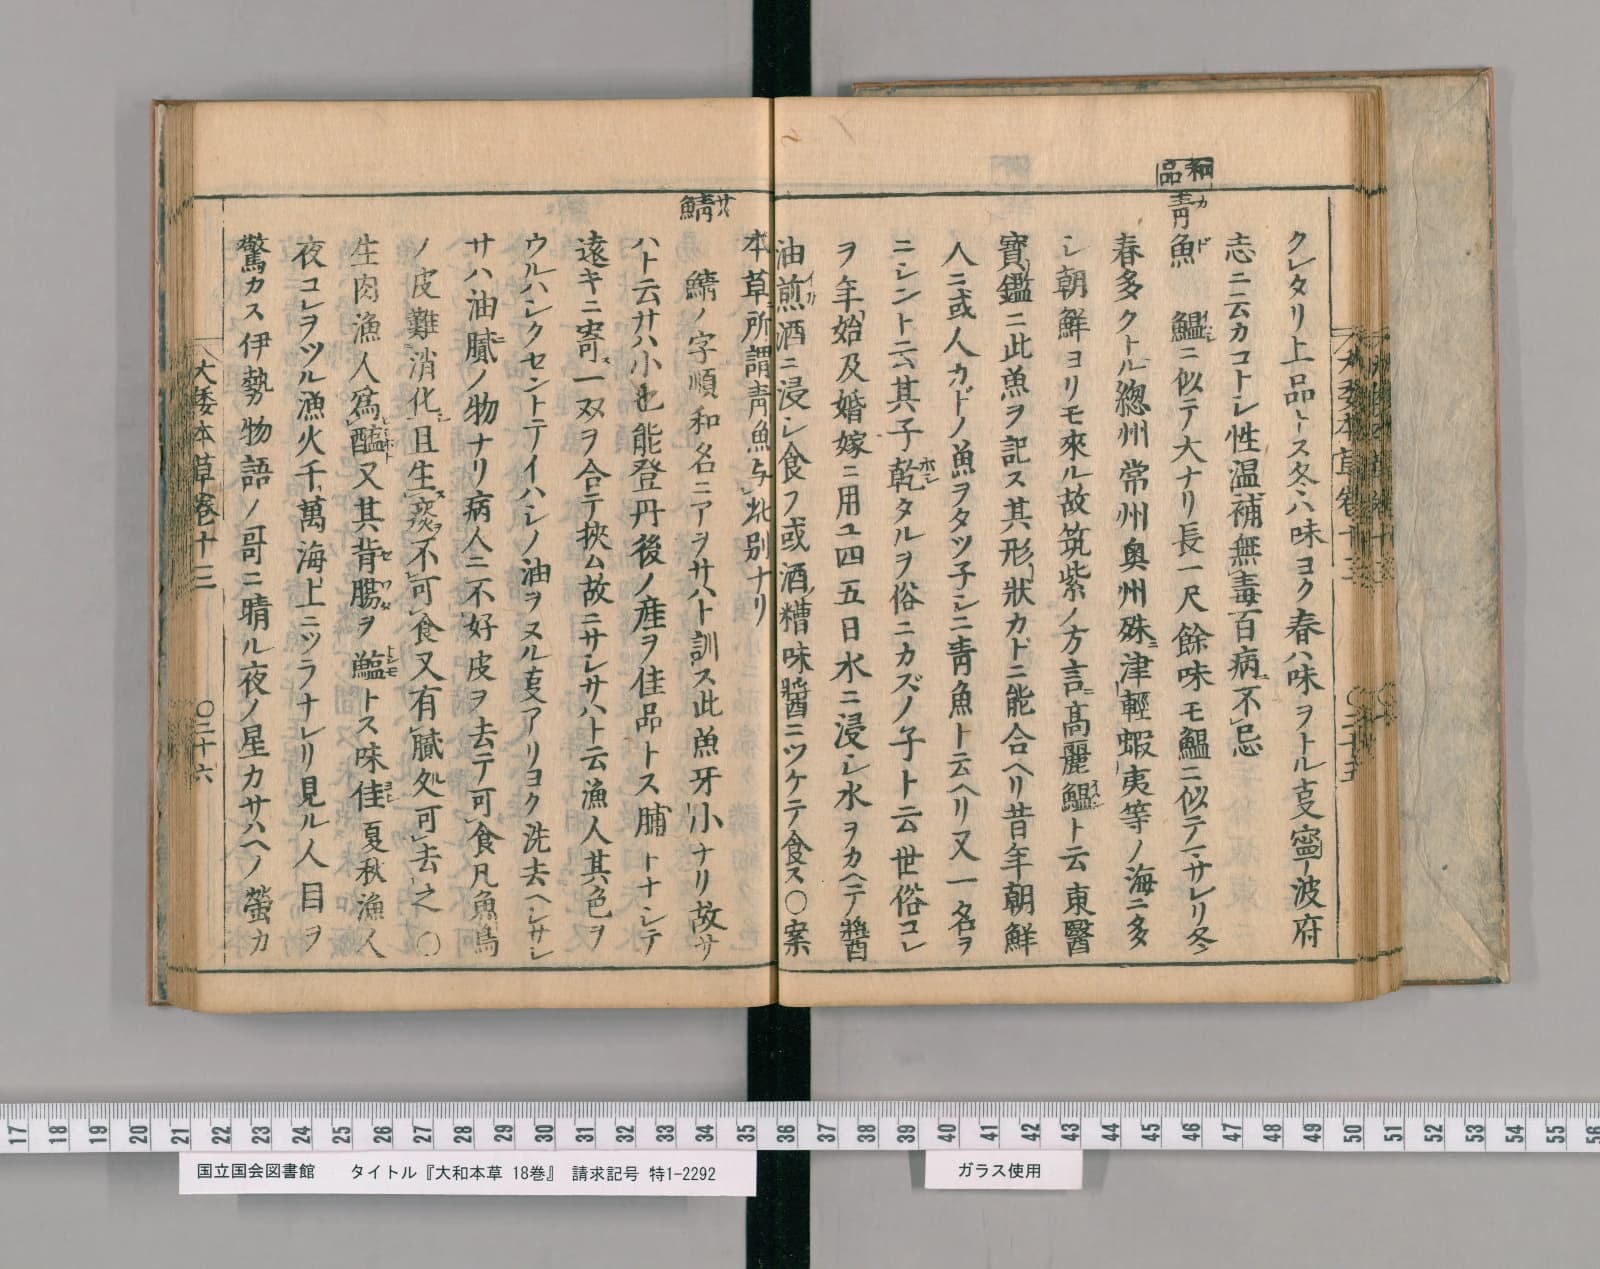 クレタリ上品トス冬ハ味ヨク春ハ味ヲトル事寧波府
志ニ云カコトシ性温補無毒百病不忌
和品
青魚 カド 鰛ニ似テ大ナリ長一尺餘味モ鰛ニ似テマサレリ冬
春多クトル總州常州奥州殊津輕蝦夷等ノ海ニ多
シ朝鮮ヨリモ來ル故筑紫ノ方言ニ高麗鰛ト云東醫
寶鑑ニ此魚ヲ記ス其形狀カドニ能合ヘリ昔年朝鮮
人ニ或人カドノ魚ヲタツ子シニ青魚ト云ヘリ又一名ヲ
ニシント云其子乾タルヲ俗ニカズノ子ト云世俗コレ
ヲ年始及婚嫁ニ用ユ四五日水ニ浸シ水ヲカヘテ醬
油煎酒ニ浸シ食フ或酒糟味醬ニツケテ食ス○案
本草所謂青魚与此別ナリ
鯖 サバ 鯖ノ字順和名ニアヲサハト訓ス此魚牙小ナリ故サ
ハト云サハ小也能登丹後ノ産ヲ佳品トス脯トナシテ
遠キニ寄ス一双ヲ合テ挾ム故ニサシサハト云漁人其色ヲ
ウルハシクセントテイハシノ油ヲヌル事アリヨク洗去ヘシサシ
サハ油膩ノ物ナリ病人ニ不好皮ヲ去テ可食凡魚鳥
ノ皮難消化且生痰不可食又有膩処可去之○
生肉漁人為醢又其背腸ヲ鱁トス味佳夏秋漁人
夜コレヲツル漁火千萬海上ニツラナレリ見ル人目ヲ
驚カス伊勢物語ノ哥ニ晴ル夜ノ星カサハヘノ螢カ
大倭本草卷十三 ○二十六
国立国会図書館 タイトル『大和本草 18巻』 請求記号 特1-2292
ガラス使用